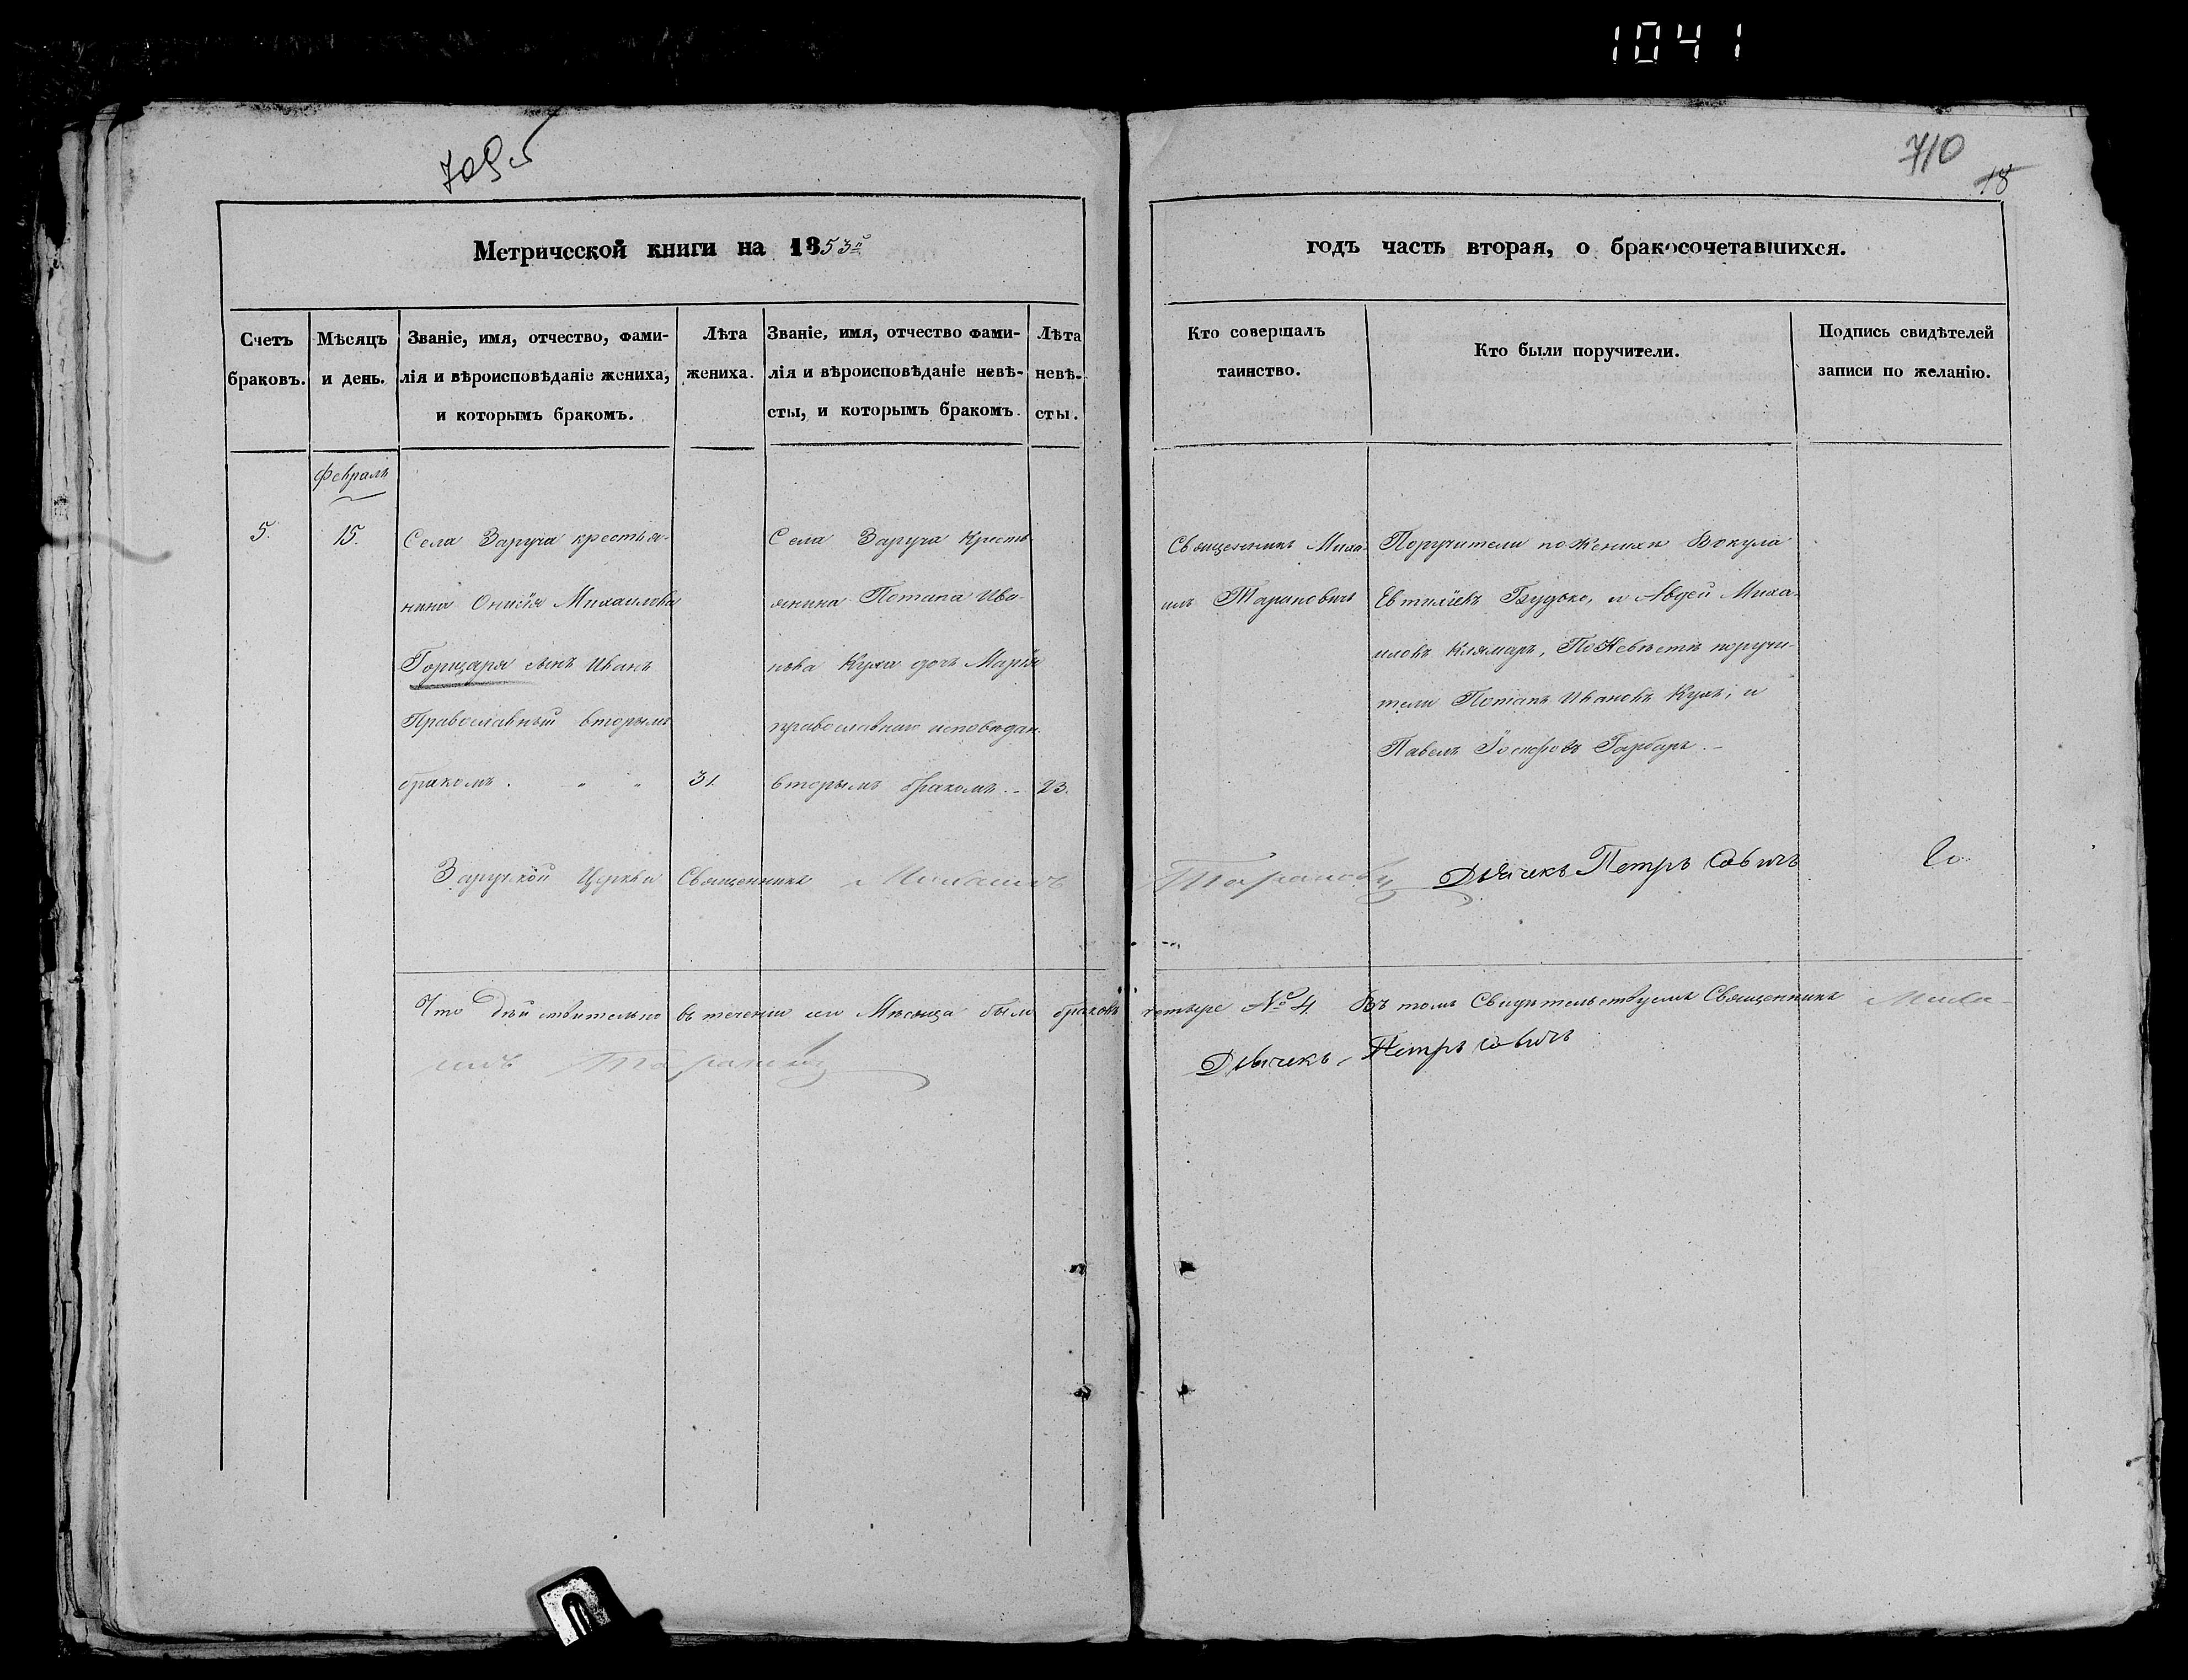 1041
709 об
710
18
Метрической книги на 1853й
годъ часть вторая, о бракосочетавшихся.
Счетъ
браковъ.
Мѣсяцъ
и день.
Званіе, имя, отчество, фами-
лія и вѣроисповѣданіе жениха,
и которымъ бракомъ.
Лѣта
жениха.
Званіе, имя, отчество фами-
лія и вѣроисповѣданіе невѣ-
сты, и которымъ бракомъ.
Лѣта
невѣ-
сты.
Кто совершалъ
таинство.
Кто были поручители.
Подпись свидѣтелей
записи по желанію.
Февраль
5.
15.
Села Заруча крестья-
нина Онисія Михаилова
Горщаря сынъ Иванъ
Православный вторымъ
бракомъ. " "
31.
Села Заруча Кресть
янина Потапа Ива-
нова Куля дочь Марія
православнаго исповѣдан.
вторымъ бракомъ..
23.
Священникъ Миха-
илъ Тарановичъ
Поручители по Женихѣ Вокула
Евтихіевъ Будько, и Авдей Миха-
иловъ Клямаръ, По Невѣстѣ поручи-
тели Потапъ Ивановъ Куль, и
Павелъ Іосифовъ Гарбаръ.
Заручской Церкви Священникъ Михаилъ Тарановичъ Дьячекъ Петръ Савичъ
Что дѣйствительно въ теченіи сего Мѣсяца было браковъ четыре № 4 Въ томъ Свидѣтельствуемъ Священникъ Миха-
илъ Тарановичъ Дьячекъ, Петръ Савичъ